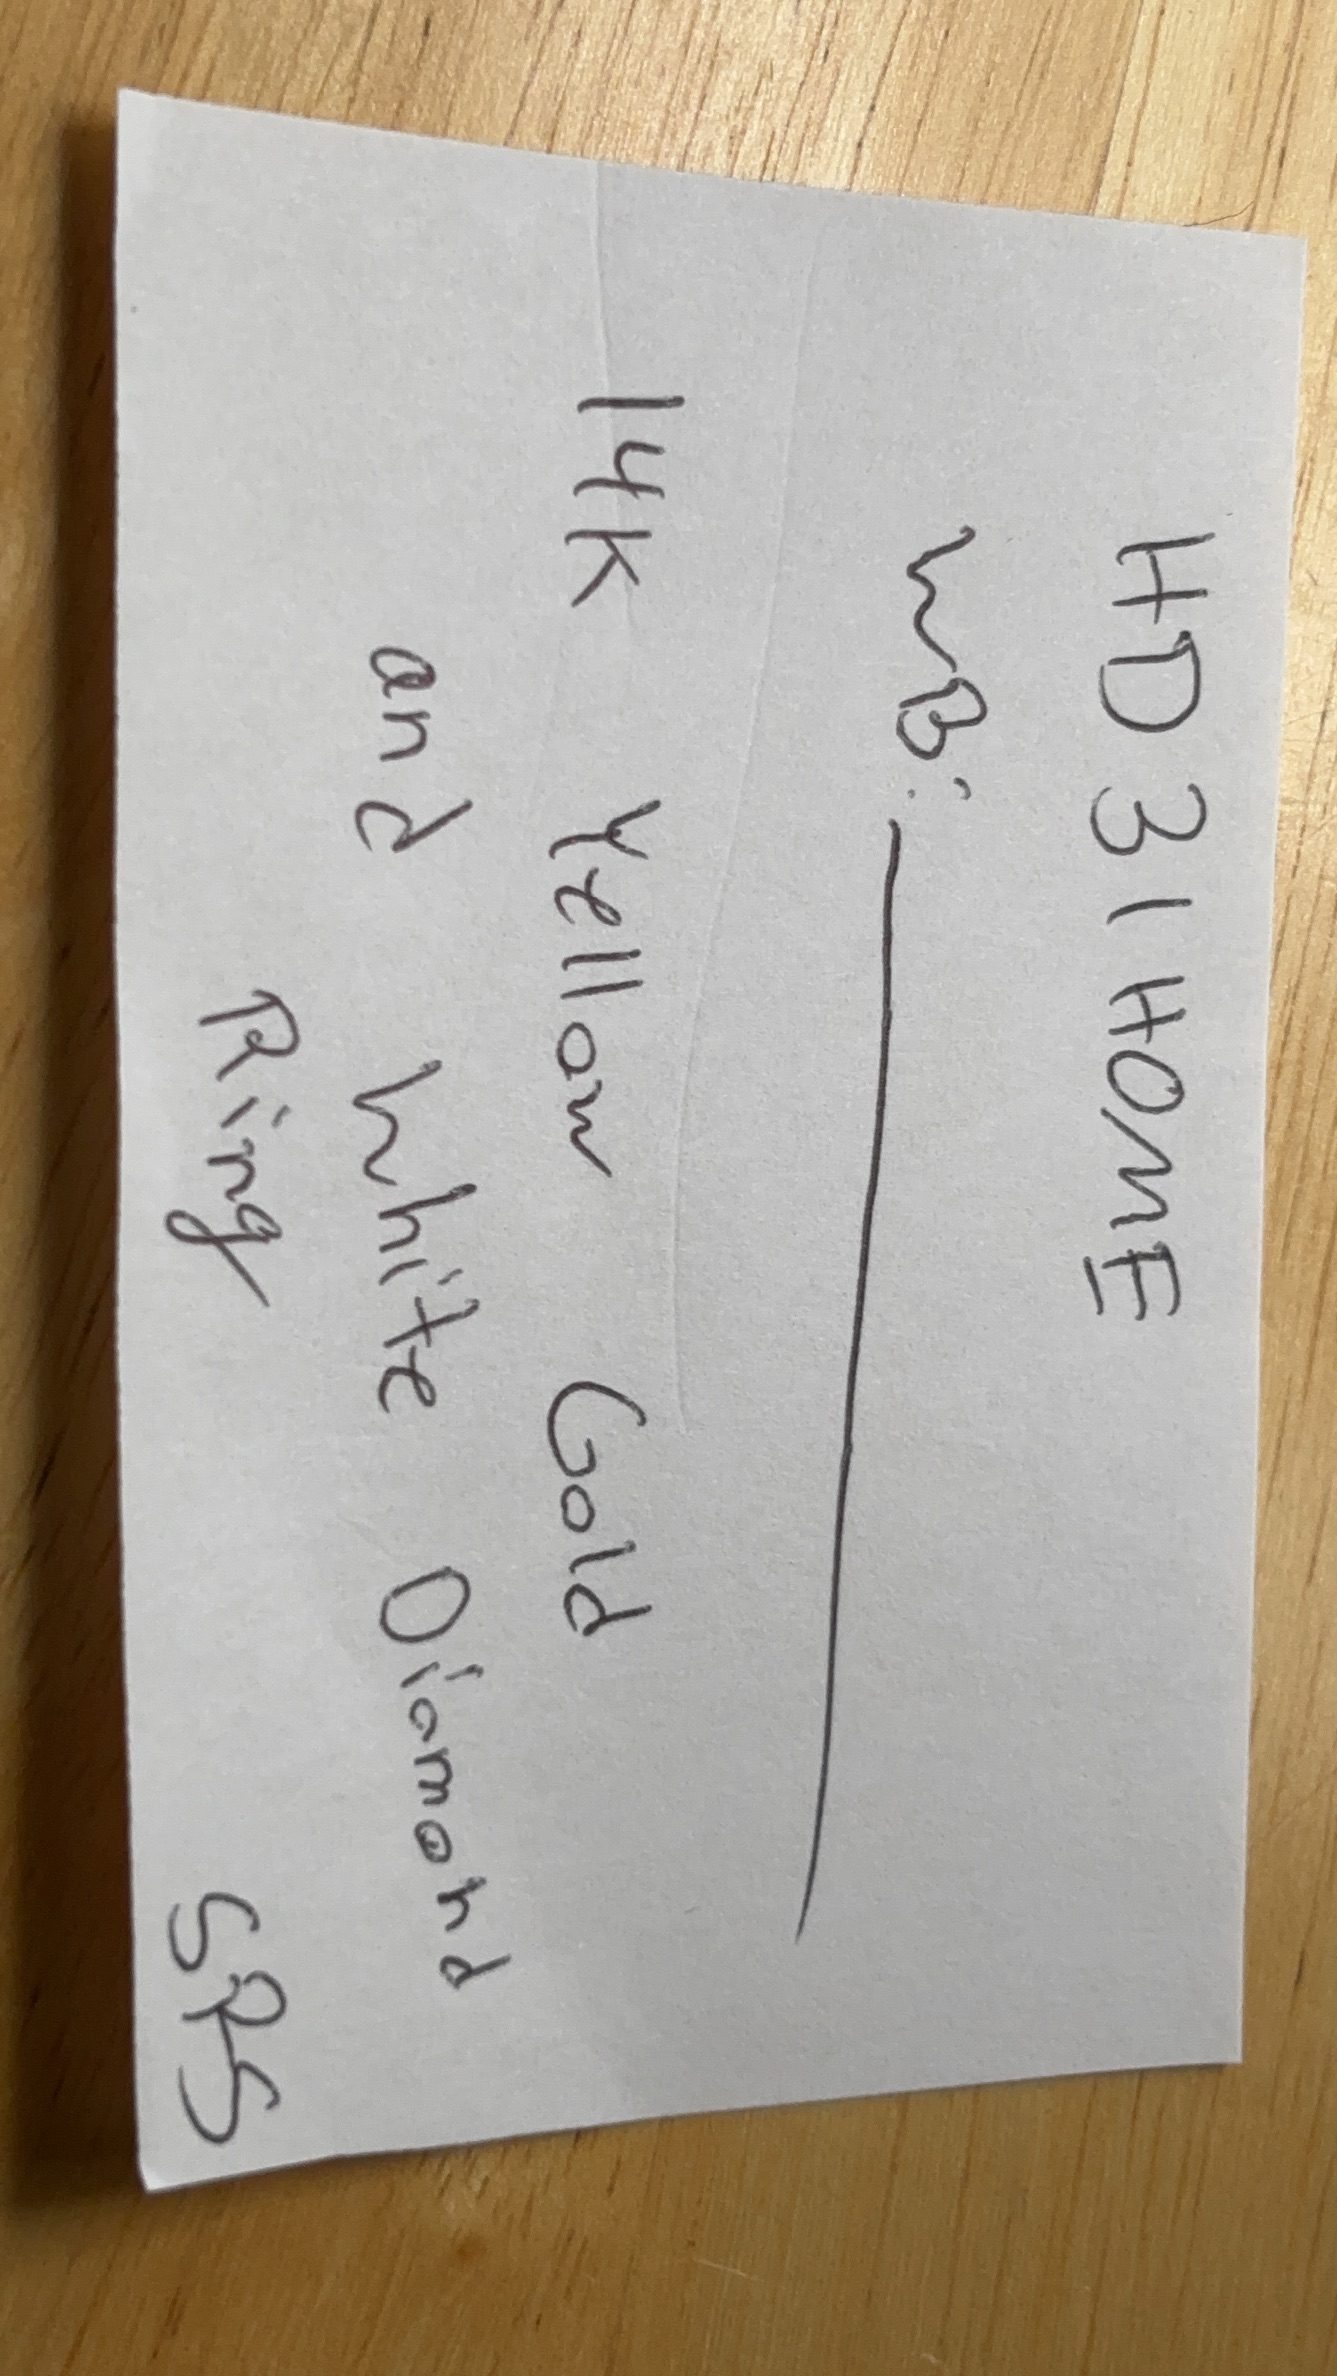 HD31HOME
WB:
14K Yellow Gold
and White Diamond
Ring
SRS